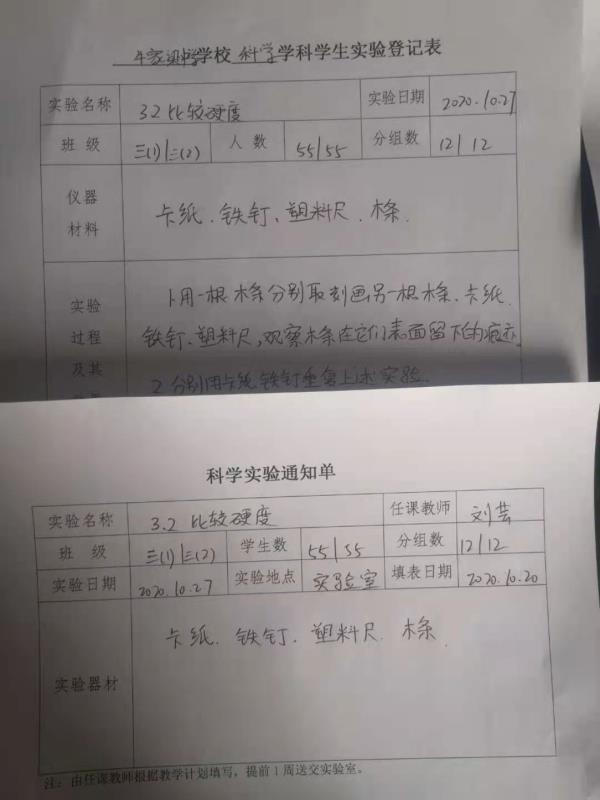 学校 科学 学科学生实验登记表
实验名称 3.2 比较硬度 实验日期 2020.10.27
班 级 三(1)/三(2) 人 数 55/55 分组数 12/12
仪器
材料
卡纬、铁钉、塑料尺、木条.
实验
过程
及其
1.用一根木条分别取刻画另一根木条、卡纸.
铁钉、塑料尺,观察木条在它们表面留下的痕迹.
2.分别用卡纸 铁钉重复上述实验.
科学实验通知单
实验名称 3.2 比较硬度 任课教师 刘芸
班 级 三(1)/三(2) 学生数 55/55 分组数 12/12
实验日期 2020.10.27 实验地点 实验室 填表日期 2020.10.20
实验器材 卡纸、铁钉、塑料尺、木条
注：由任课教师根据教学计划填写，提前1周送交实验室。